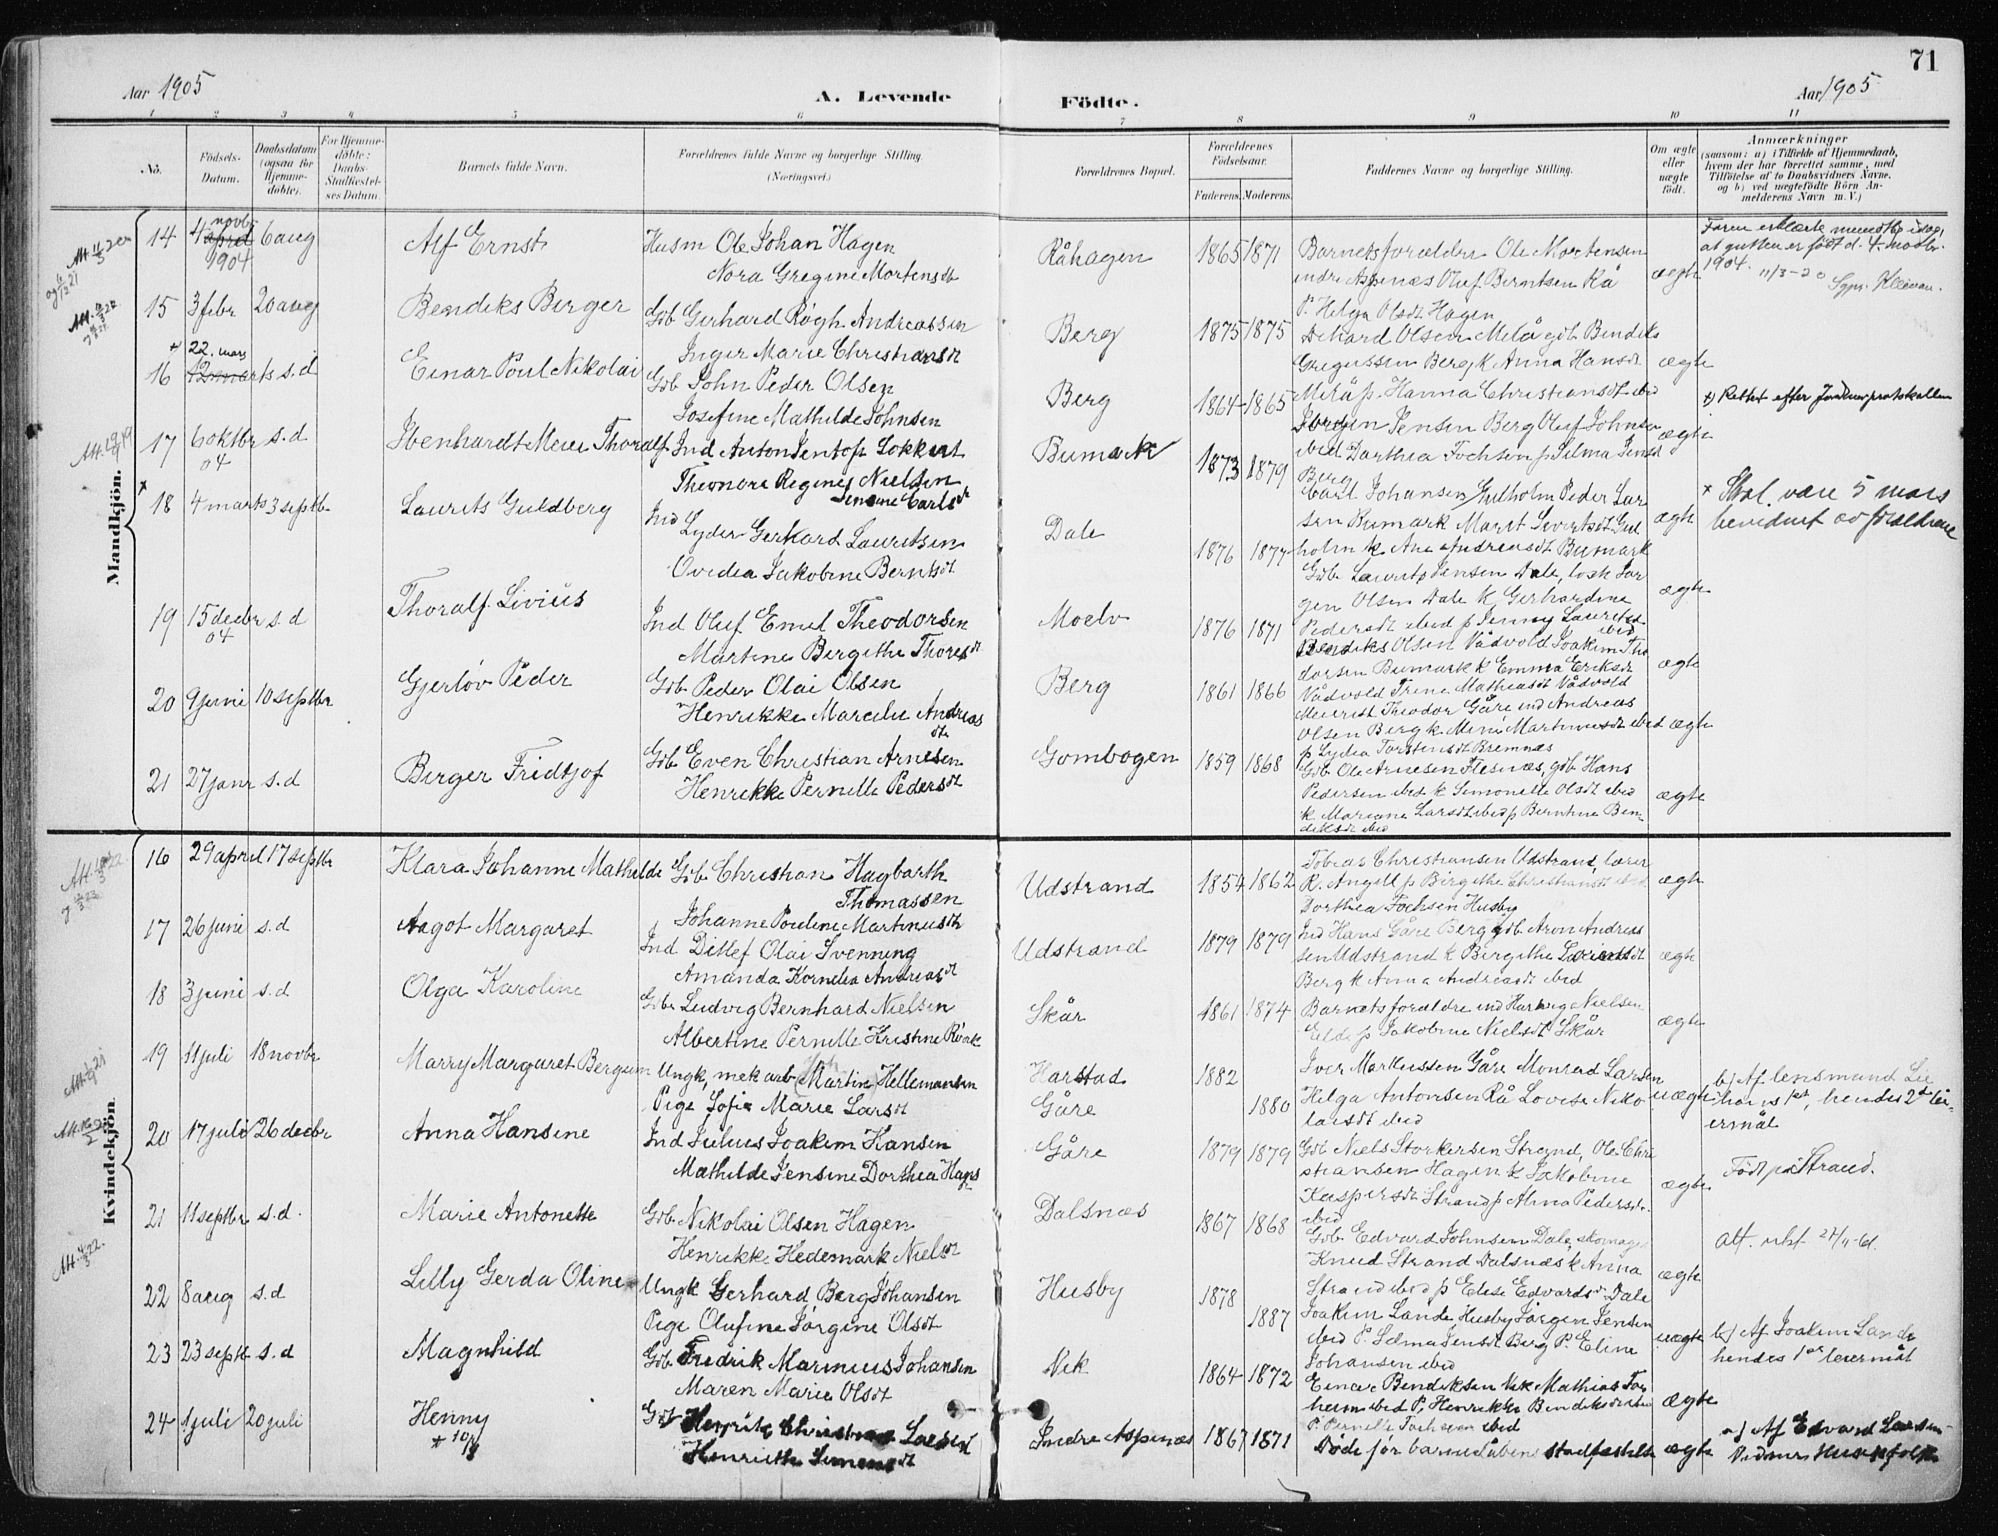 71
Aar 1905
A. Levende
Födte.
Aar 1905
1 2 3 4 5 6 7 8 9 10 11
No.
Födsels-Datum.
Daabsdatum (ogsaa for Hjemmedöbte).
For Hjemmedöbte: Daabs-Stadfæstelses Datum.
Barnets fulde Navn.
Forældrenes fulde Navne og borgerlige Stilling.
(Næringsvei.)
Forældrenes Bopæl.
Forældrenes Födselsaar.
Faderens. Moderens.
Faddernes Navne og borgerlige Stilling.
Om ægte eller uægte födt.
Anmærkninger
(saasom: a) i Tilfælde af Hjemmedaab,
hvem der har forrettet samme, med
Tilföielse af to Daabsvidners Navne,
og b) ved uægtefödte Börn An-
melderens Navn m. V.)
Mandkjön.
14 4 april novbr 1904 6 aug Alf Ernst Husm Ole Johan Hagen
Nora Gregine Mortensdt
Råhagen 1865 1871 Barnets forældre Ole Mortensen
indre Aspenæs Oluf Berntsen Rå
P. Helga Olsdt Hagen
ægte
Faren erklærte mundtlig idag,
at gutten er født d. 4. novbr.
1904. 11/3-20
15 3 febr 20 aug Bendiks Birger Gdb Gerhard Røgh Andreassen
Inger Marie Christiansdt
Berg 1875 1875
Olsen Milå gdb Bendiks
Gregussen Berg k Anna Hansdt
Milå p. Hanna Christiansdt ibid
ægte
16 12 marts 22. mars s.d Einar Poul Nikolai Gdb John Peder Olsen
Josefine Mathilde Johnsen
Berg 1864 1865
Jørgen Jensen Berg Oluf Johnsen
ibid Dorthea Fochsen p Selma Jensdt
Berg
ægte
+) Rettet efter
17 6 oktbr 04 s.d Ibenhardt Meier Thoralf Ind Anton
Theonora Regine Nielsen
Bumark 1873 1879
Carl Johansen Gulholm Peder Lar
sen Bumark Marit Sivertsdt Gul
holm k Ane Andreasdt Bumark
ægte
18 4 marts 3 septbr Laurits Guldberg Ind Lyder Gerhard Lauritsen
Ovedia Jakobine Berntsdt
Dale 1876 1877
Gdb Laurits Jensen Dale,
gen Olsen Dale k Gerhardine
Pedersdt ibid p Jenny Lauritsd
ibid
ægte
× Skal være 5 mars
bevidnet av forældrene
19 15 decbr 04 s.d Thoralf Livius Ind Oluf Emil Theodorsen
Martine Bergithe Thoresdt
Moelv 1876 1871
Bendiks Olsen Vådvold Joakim Theo
dorsen Bumark k Emma Eriksdt
Vådvold Trine Mathiasdt Vådvold
ægte
20 9 juni 10 septbr Gjerløv Peder Gdb Peder Olai Olsen
Henrikke Marcelie Andreas
dt
Berg 1861 1866
Meurits Theodor Gåre ind Andreas
Olsen Berg k Mina Martinusdt ibid
p Lydia Torstensdt Bremnæs
ægte
21 27 janr s.d Birger Fridtjof Gdb Even Christian Arnesen
Henrikke Pernille Pedersdt
Gombogen 1859 1868
Gdb Ole Arnesen Flesnæs, gdb Hans
Pedersen ibid k Simonette Olsdt ibid
k Mariane Larsdt ibid p Bernhine Ben-
diksdt ibid
ægte
Kvindekjön
16 29 april 17 septbr Klara Johanne Mathilde Gdb Christian Hagbarth
Thomassen
Johanne Pouline Martinusdt
Udstrand 1854 1862
Tobias Christiansen Udstrand, lærer
R. Angell p Birgithe Christiansdt ibid
Dorthea Fochsen Husby
ægte
17 26 juni s.d Aagot Margaret Ind Detlef Olai Svenning
Amanda Kornelia Andreasdt
Udstrand 1879 1879
Ind Hans Gåre Berg gdb. Aron Andreas
sen Udstrand k Birgithe
Berg k Anna Andreasdt ibid
ægte
18 3 juni s.d Olga Karoline Gdb Ludvig Bernhard Nielsen
Albertine Pernille Kristine
Skår 1861 1874
Barnets forældre ind Hartvig Nielsen
Elde p Jakobine Nielsdt Skår
ægte
19 11 juli 18 novbr Marry Margaret Bergum Ungk, mek arb Martin Hellemansen
Pige Sofie Marie Larsdt
Harstad
Gåre
1882 1880
Iver Markussen Gåre Monrad Larsen
Helga Antonsen Rå Lovise Niko
laisdt ibid
uægte
b) Af lensmand Lie
hans 1ste, hendes 2det lei-
ermål
20 17 juli 26 decbr Anna Hansine Ind Julius Joakim Hansen
Mathilde Jensine Dorthea Hans
Gåre 1879 1879
Gdb Niels Storkersen Strand, Ole Chri
stiansen Hagen k Jakobine
Kaspersdt Strand p Anna Pedersdt.
ibid
ægte
Født på Strand.
21 11 septbr s.d. Marie Antonette Gdb Nikolai Olsen Hagen
Henrikke Hedemark Nielsdt
Dalsnæs 1867 1868
Gdb Edvard Johnsen Dale, skomag.
Knud Strand Dalsnæs k Anna
Strand ibid p Elise Edvardsdt Dale
ægte
att. utst 27/11-61.
22 8 aug s.d Lilly Gerda Oline Ungk Gerhard Berg Johansen
Pige Olufine Jørgine Olsdt
Husby 1878 1887
Joakim Lande, Husby Jørgen Jensen
ibid P. Selma Jensdt Berg P. Eline
Johansen ibid
uægte
b) Af Joakim Lande
hendes 1ste leiermål
23 23 septbr s.d Magnhild Gdb Fredrik Marinius Johansen
Maren Marie Olsdt
Vik 1864 1872
Einar Bendiksen Vik Mathias Tor
heim ibid P. Henrikke Bendiksdt ibid
P. Pernille ibid
ægte
24 1 juli 20 juli Henny Gdb Henrik Larsen
Henriette Simonsdt
Indre Aspenæs 1867 1871
Døde før barnedåben stadfæstelse
ægte
a) Af Edvard Larsen